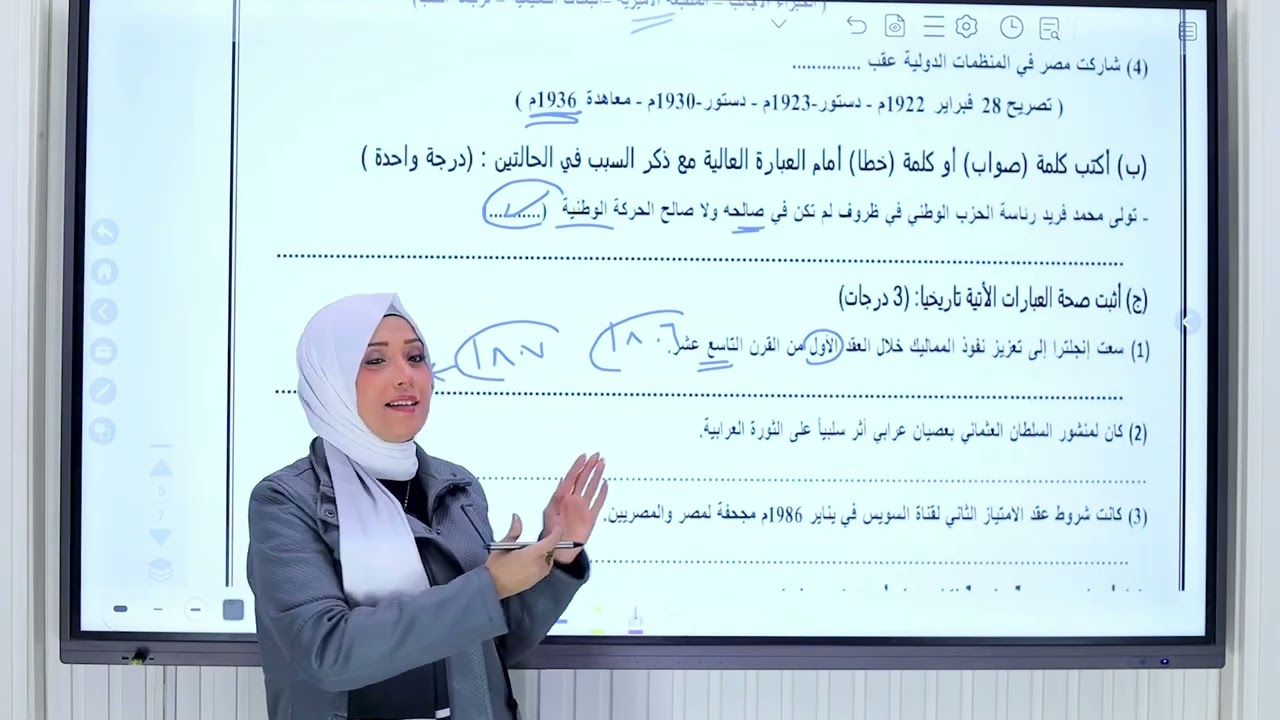 (4) شاركت مصر في المنظمات الدولية عقب ..............
( تصريح 28 فبراير 1922م - دستور-1923م - دستور-1930م - معاهدة 1936م )
(ب) أكتب كلمة (صواب) أو كلمة (خطا) أمام العبارة العالية مع ذكر السبب في الحالتين : (درجة واحدة )
- تولى محمد فريد رئاسة الحزب الوطني في ظروف لم تكن في صالحه ولا صالح الحركة الوطنية (..........)
(ج) أثبت صحة العبارات الأتية تاريخيا: (3 درجات)
(1) سعت إنجلترا إلى تعزيز نفوذ المماليك خلال العقد الأول من القرن التاسع عشر.
١٨٠٦
١٨٠٧
(2) كان لمنشور السلطان العثماني بعصيان عرابي أثر سلبياً على الثورة العرابية.
(3) كانت شروط عقد الامتياز الثاني لقناة السويس في يناير 1986م مجحفة لمصر والمصريين.
5
7